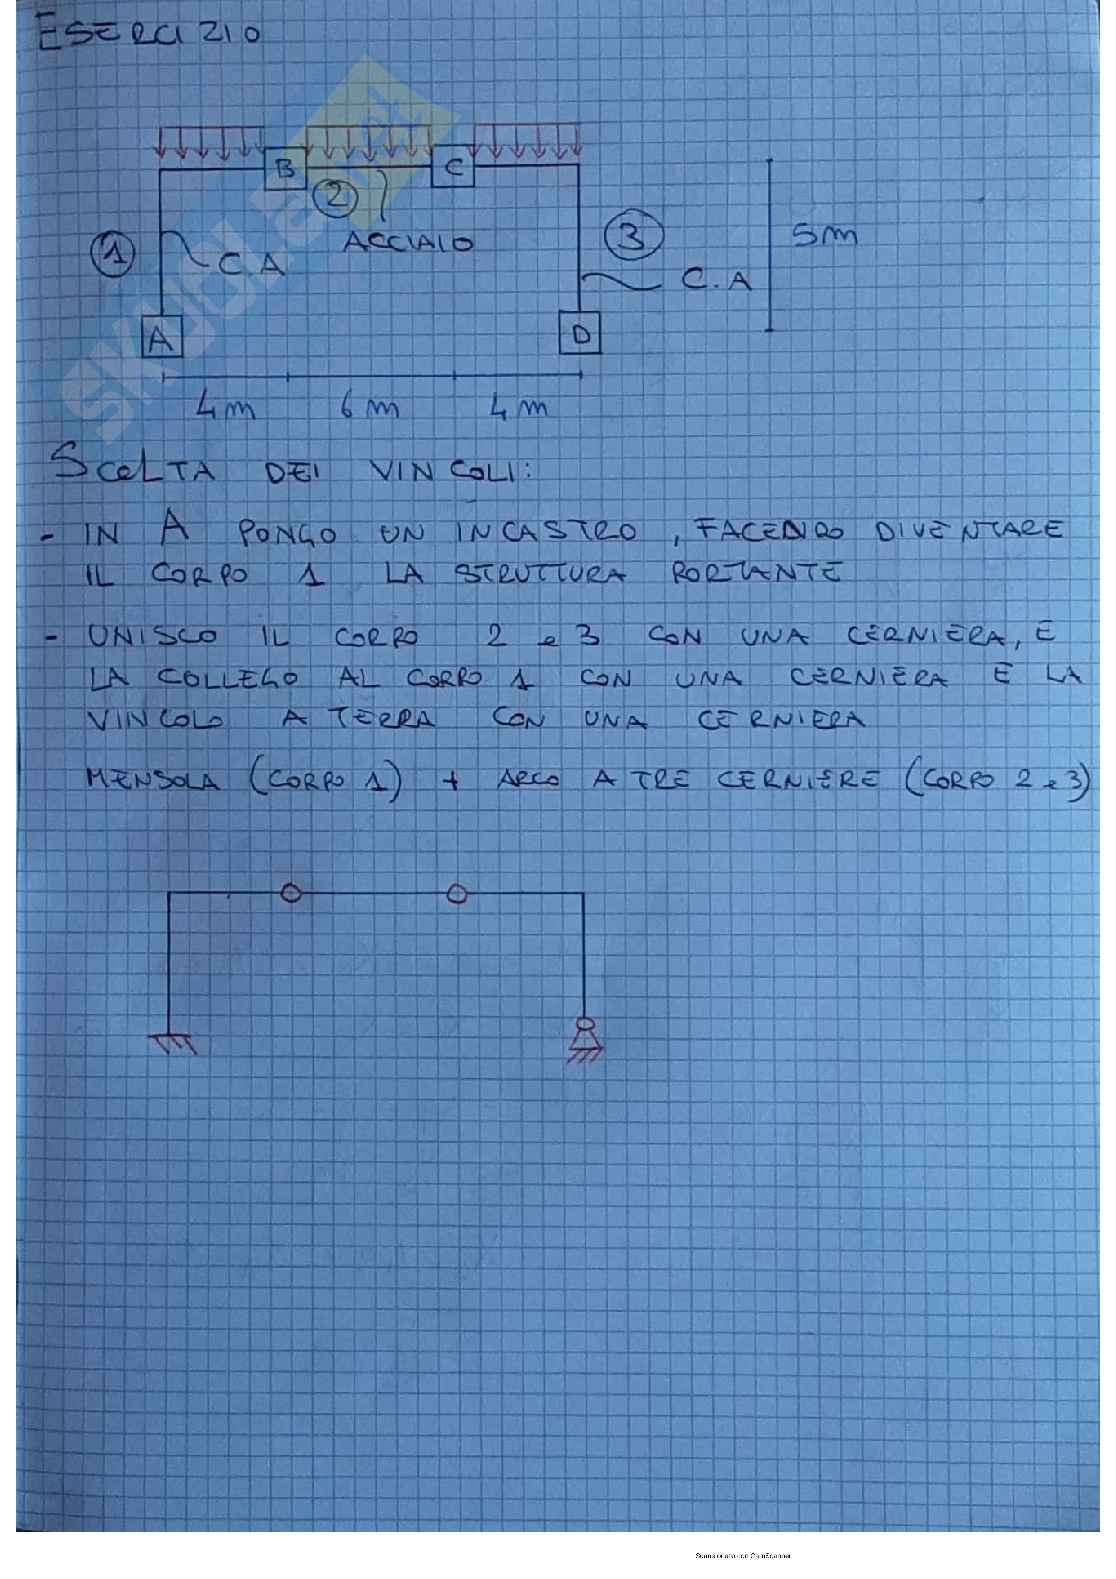 ESERCIZIO
B
C
2
ACCIAIO
1
C.A
3
C.A
5m
A
D
4m 6m 4m
SCELTA DEI VINCOLI:
- IN A PONGO UN INCASTRO, FACENDO DIVENTARE
IL CORPO 1 LA STRUTTURA PORTANTE
- UNISCO IL CORPO 2 e 3 CON UNA CERNIERA, E
LA COLLEGO AL CORPO 1 CON UNA CERNIERA E LA
VINCOLO A TERRA CON UNA CERNIERA
MENSOLA (CORPO 1) + ARCO A TRE CERNIERE (CORPO 2 e 3)